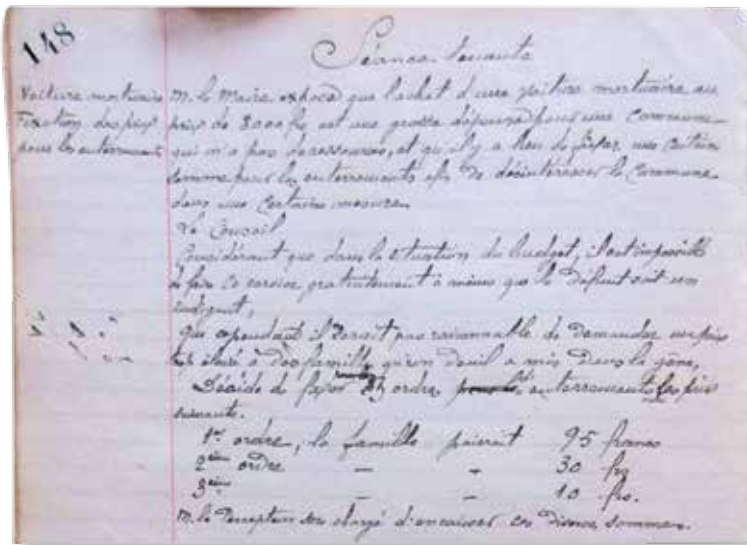 148
Séance tenante
Voiture mortuaire
Fixation des prix
pour les enterrements
M. le Maire expose que l'achat d'une voiture mortuaire au
prix de 3000 frs est une grosse dépense pour une Commune
qui n'a pas de ressources, et qu'il y a lieu de fixer une certaine
somme pour les enterrements afin de désintéresser la Commune
dans une certaine mesure.
Le Conseil
Considérant que dans la situation du budget, il est impossible
de faire ce service gratuitement à moins que le défunt soit un
indigent,
que cependant il serait pas raisonnable de demander un prix
très élevé à des familles qu'un deuil a mis dans la gêne,
Décide de fixer ordre pour les enterrements les prix
suivants.
1er ordre, la famille paierait 95 francs
2ème ordre — — 30 frs
3ème — — 10 frs.
M. le Percepteur sera chargé d'encaisser ces diverses sommes.